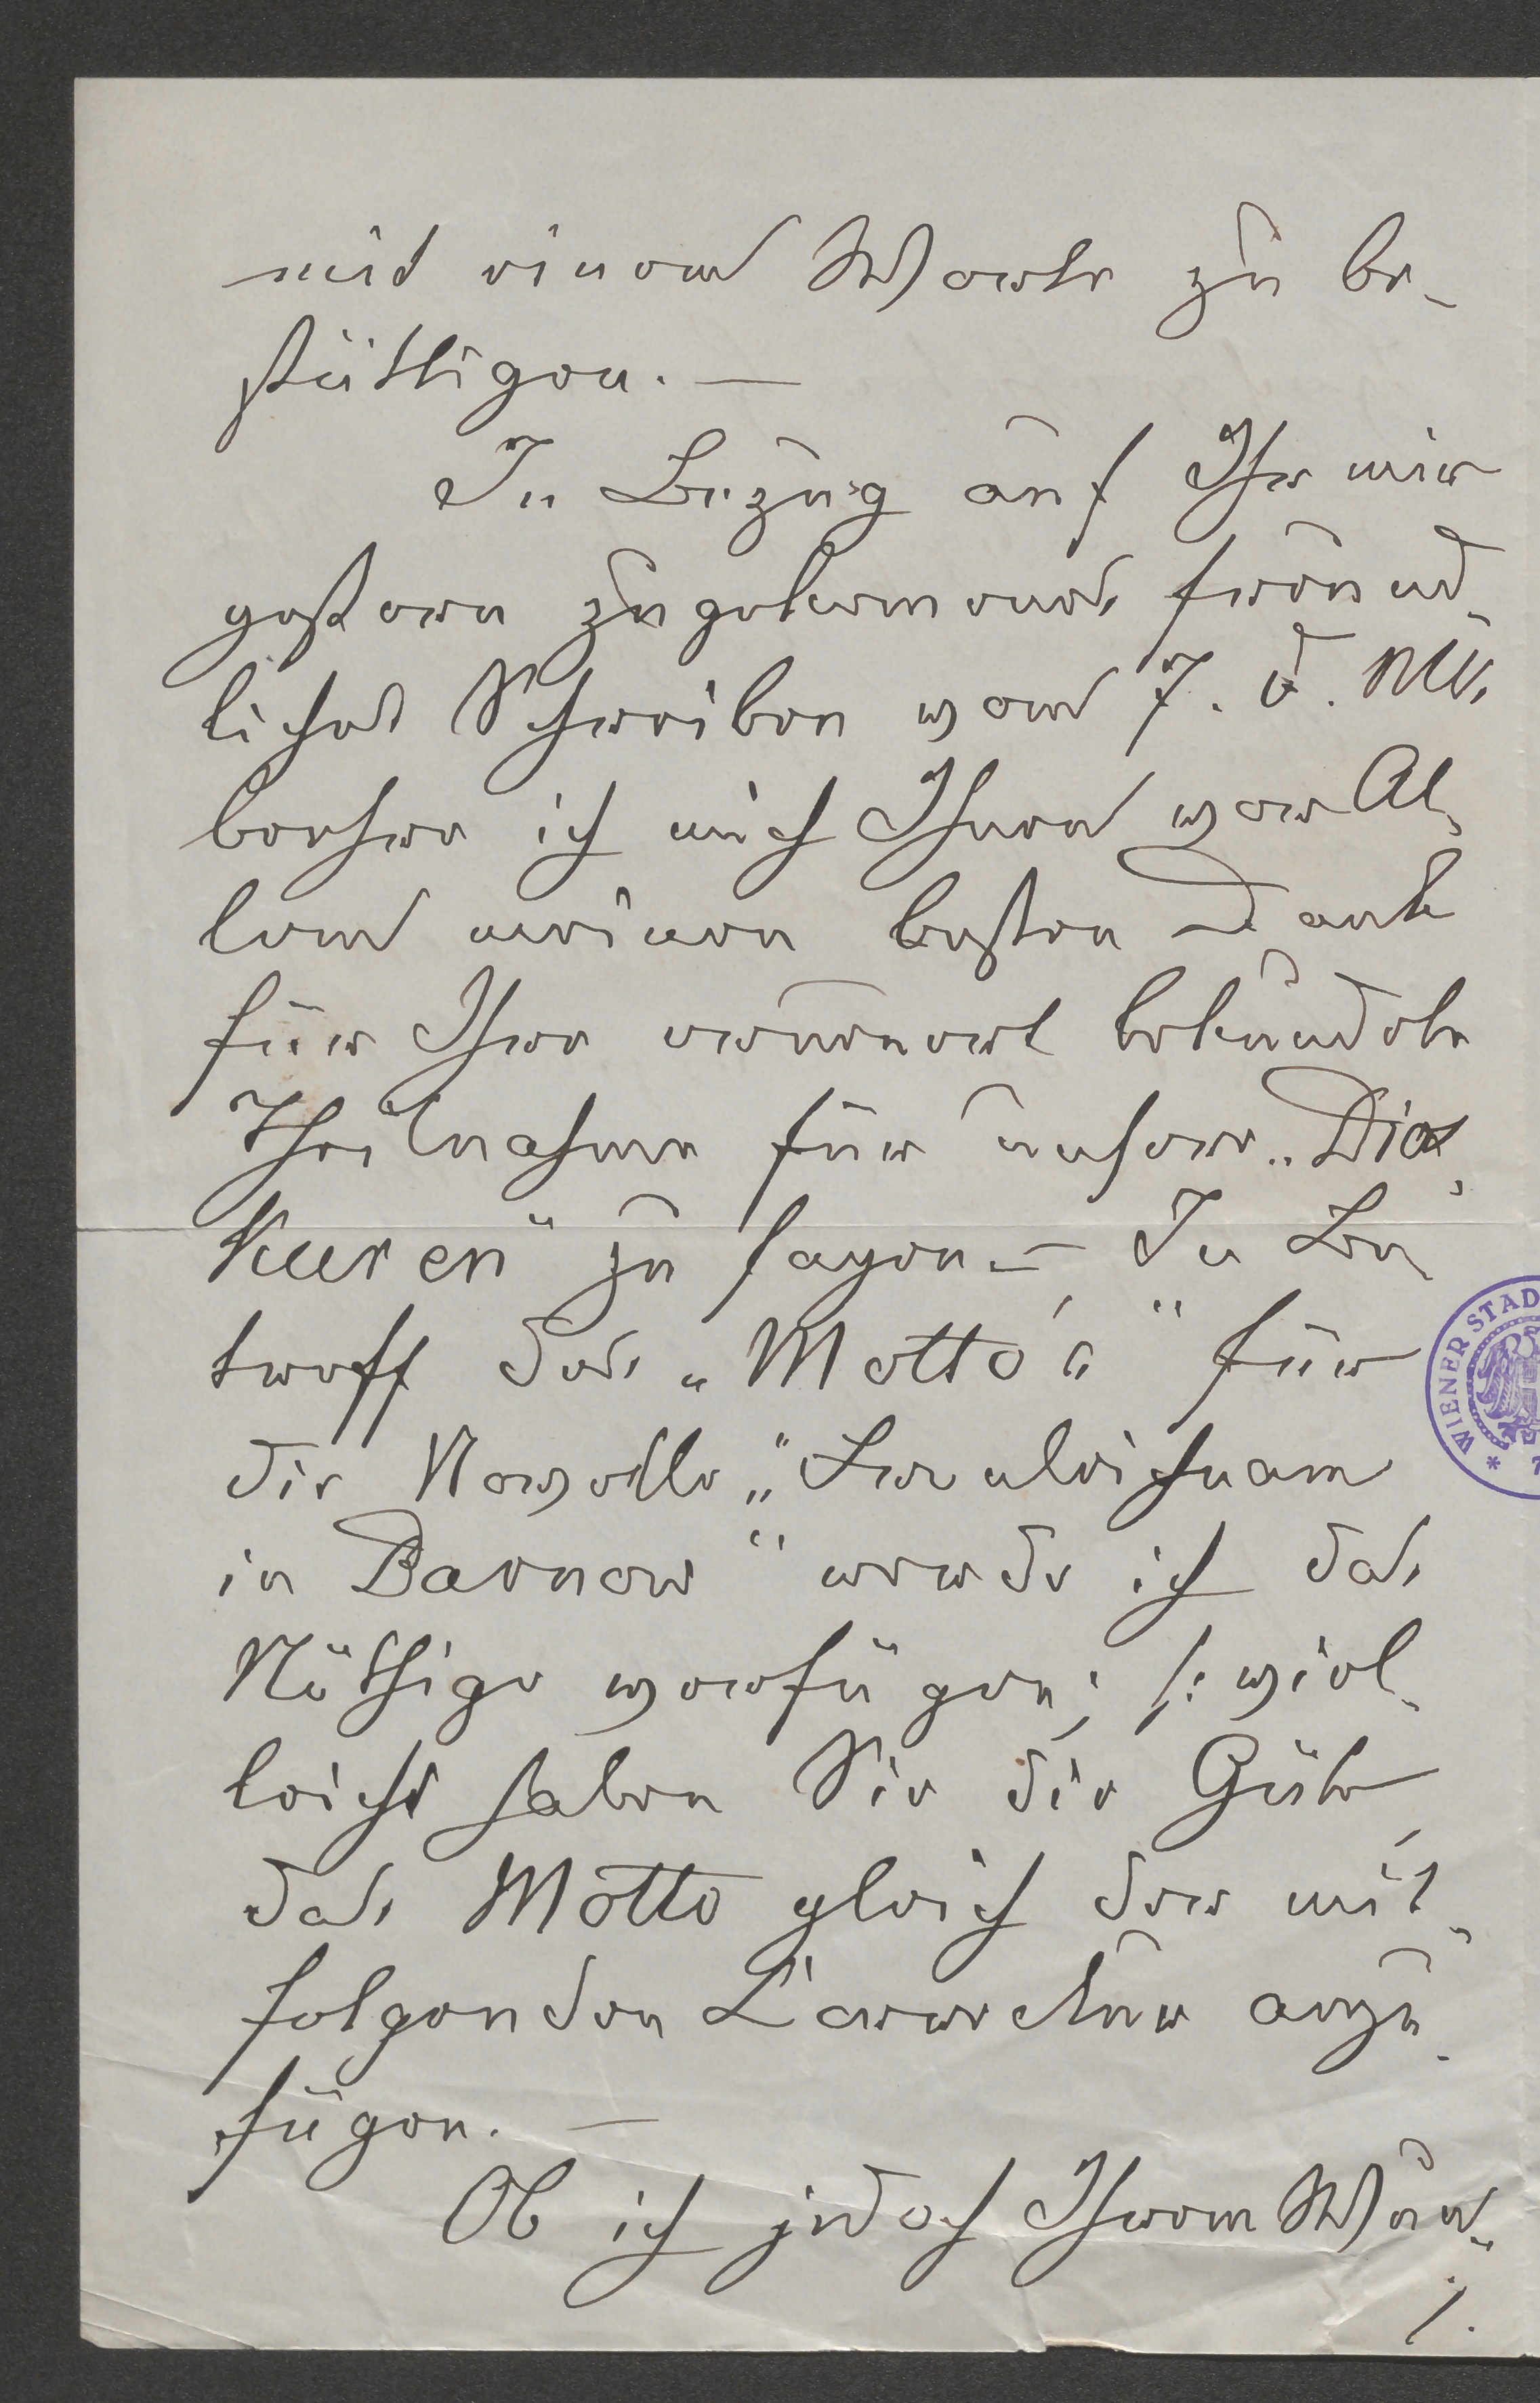 mit einem Worte zu be-
stättigen. —
In Bezug auf Ihr mir
gestern zugekommenes freund-
liches Schreiben vom 7. d. Mts.
beehre ich mich Ihnen vor Al-
lem meinen besten Dank
für Ihre erneuert bekundete
Theilnahme für unsere „Dios-
kuren" zu sagen. — In Be-
treff des „Motto's" für
die Novelle „Fronleichnam
in Barnow" werde ich das
Nöthige verfügen; /: viel-
leicht haben Sie die Güte,
das Motto gleich der mit-
folgenden Correktur anzu-
fügen. —
Ob ich jedoch Ihrem Wun-
/.
WIENER STAD